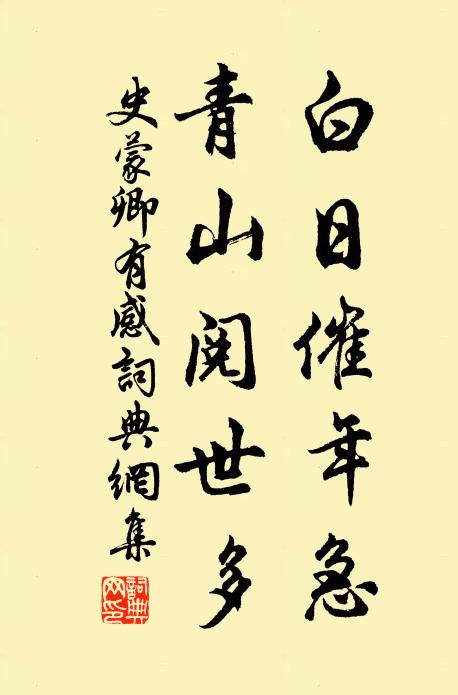 白日催年急
青山閱世多
史蒙卿有感詞典網集
詞典
网印